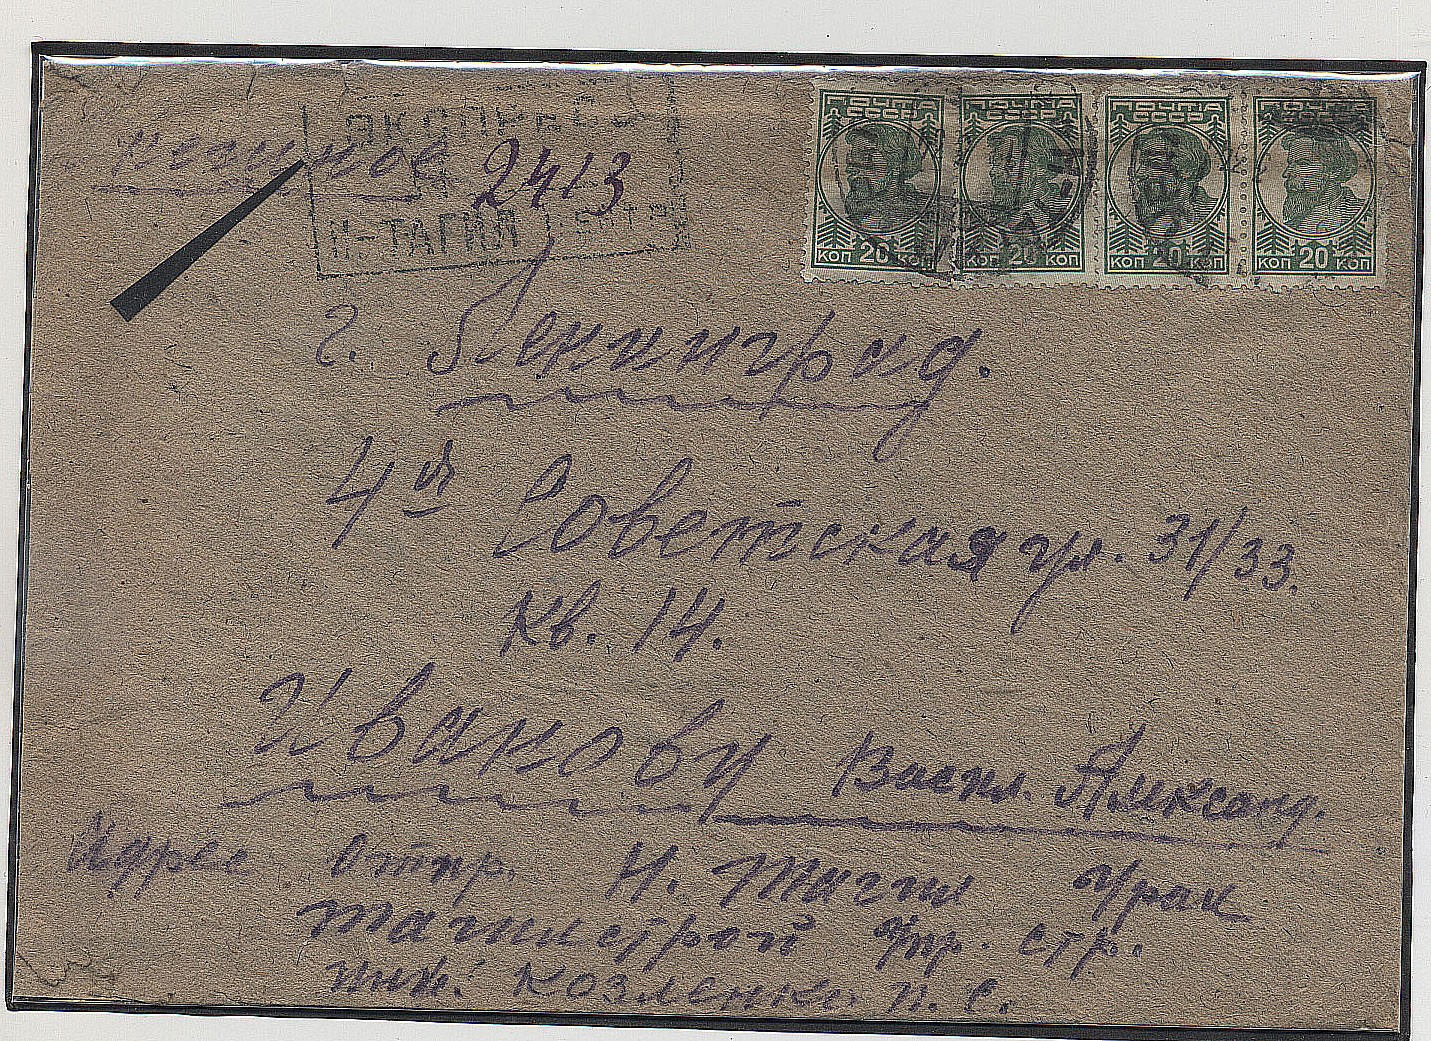 ПОЧТА СССР ПОЧТА СССР ПОЧТА СССР ПОЧТА
КОП 20 КОП КОП 20 КОП КОП 20 КОП КОП 20 КОП
2413
Н-ТАГИЛ
г. Ленинград.
4ая Советская ул. 31/33.
Кв. 14.
Иванову Васил. Александ.
Адрес Отпр. Н. Тагил Урал
Тагилстрой Упр. стр.
инж. Козленко П. С.